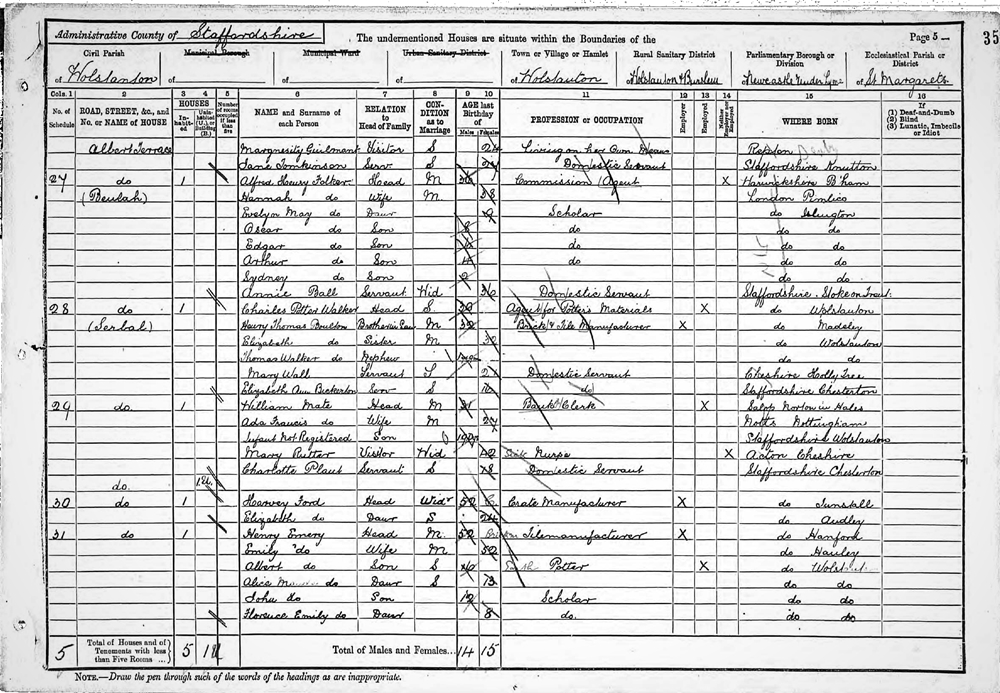 Administrative County of Staffordshire The undermentioned Houses are situate within the Boundaries of the Page 5 35
Civil Parish Municipal Borough Municipal Ward Urban Sanitary District Town or Village or Hamlet Rural Sanitary District Parliamentary Borough or Division Ecclesiastical Parish or District
of Wolstanton of of of of Wolstanton of Wolstanton & Burslem of Newcastle under Lyme of St. Margarets
Cols. 1 2 3 4 5 6 7 8 9 10 11 12 13 14 15 16
No. of Schedule ROAD, STREET, &c., and No. or NAME of HOUSE HOUSES Inhabited Uninhabited (U.), or Building (B.) Number of rooms occupied if less than five NAME and Surname of each Person RELATION to Head of Family CONDITION as to Marriage AGE last Birthday of Males Females PROFESSION or OCCUPATION Employer Employed Neither Employer nor Employed WHERE BORN If (1) Deaf-and-Dumb (2) Blind (3) Lunatic, Imbecile or Idiot
Albert Terrace Visitor S 24 Living on her Own Means
Jane Tomkinson Serv S Domestic Servant Staffordshire Knutton
27 do 1 Alfred Henry Folker Head M 36 Commission Agent X Warwickshire B'ham
(Beulah) Hannah do Wife M 38 London Pimlico
Evelyn May do Daur 9 Scholar do Islington
Oscar do Son 8 do do do
Edgar do Son do do do
Arthur do Son 4 do do do
Sydney do Son 2 do do
Annie Ball Servant Wid 36 Domestic Servant Staffordshire, Stoke on Trent
28 do 1 Charles Potter Walker Head S Agent for Potters Materials X do Wolstanton
Henry Thomas Boulton Brother in Law M 32 Brick & Tile Manufacturer X do Madeley
Elizabeth do Sister M 32 do Wolstanton
Thomas Walker do Nephew do do
Mary Wall Servant S 27 Domestic Servant Cheshire Holly Tree
Elizabeth Ann Bickerton S do Staffordshire Chesterton
29 do 1 William Mate Head M 31 Bank Clerk X Salop Norton in Hales
Ada Francis do Wife M 27 Notts Nottingham
Infant Not Registered Son Staffordshire Wolstanton
Mary Rutter Visitor Wid 42 Nurse X Acton Cheshire
Charlotte Plant Servant S 18 Domestic Servant Staffordshire Chesterton
do. 1 U.
30 do 1 Harvey Ford Head Widr 52 Crate Manufacturer X do Tunstall
Elizabeth do Daur S 24 do Audley
31 do 1 Henry Emery Head M. 52 Tilemanufacturer X do Hanford
Emily do Wife M 52 do Hanley
Albert do Son S Potter X do
Alice do Daur S 13 do do
John do Son 12 Scholar do do
Florence Emily do Daur 8 do. do do
5 Total of Houses and of Tenements with less than Five Rooms ... 5 1U Total of Males and Females... 14 15
NOTE.—Draw the pen through such of the words of the headings as are inappropriate.